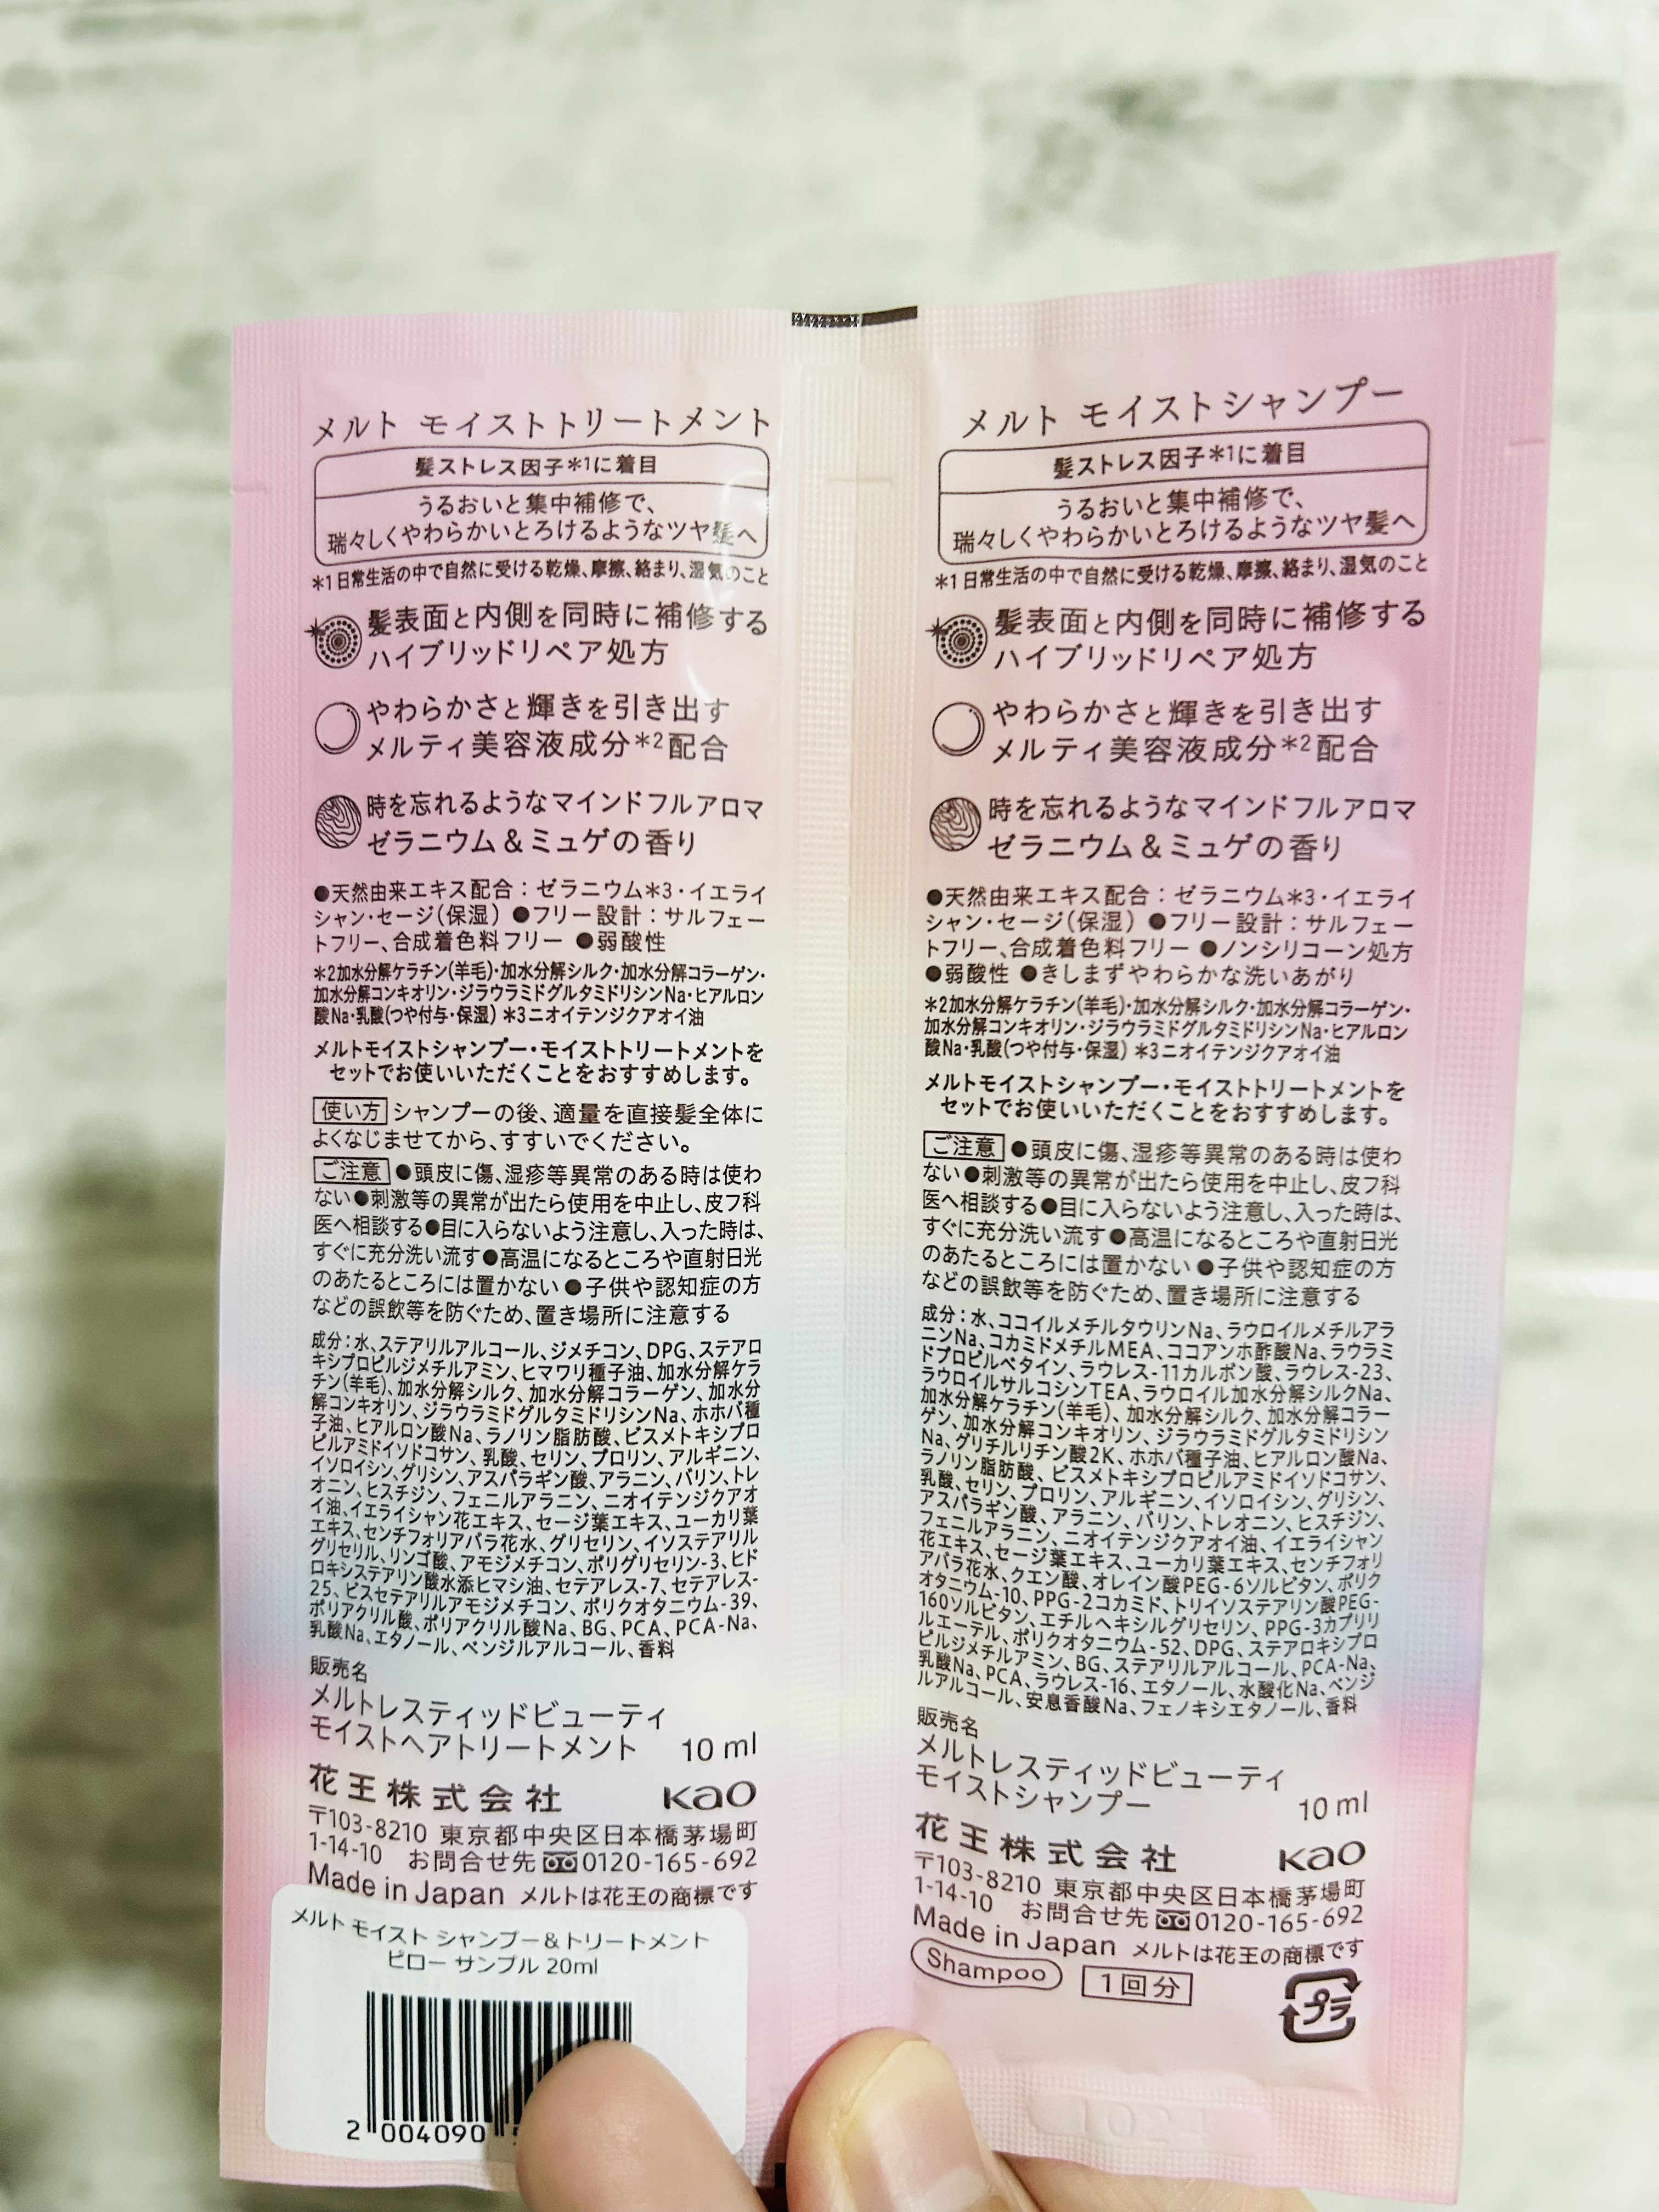 メルト モイストトリートメント
髪ストレス因子*1に着目
うるおいと集中補修で、
瑞々しくやわらかいとろけるようなツヤ髪へ
*1日常生活の中で自然に受ける乾燥、摩擦、絡まり、湿気のこと
髪表面と内側を同時に補修する
ハイブリッドリペア処方
やわらかさと輝きを引き出す
メルティ美容液成分*2配合
時を忘れるようなマインドフルアロマ
ゼラニウム&ミュゲの香り
●天然由来エキス配合：ゼラニウム*3・イエライ
シャン・セージ(保湿) ●フリー設計：サルフェー
トフリー、合成着色料フリー ●弱酸性
*2加水分解ケラチン(羊毛)・加水分解シルク・加水分解コラーゲン・
加水分解コンキオリン・ジラウラミドグルタミドリシンNa・ヒアルロン
酸Na・乳酸(つや付与・保湿) *3ニオイテンジクアオイ油
メルトモイストシャンプー・モイストトリートメントを
セットでお使いいただくことをおすすめします。
使い方 シャンプーの後、適量を直接髪全体に
よくなじませてから、すすいでください。
ご注意 ●頭皮に傷、湿疹等異常のある時は使わ
ない●刺激等の異常が出たら使用を中止し、皮フ科
医へ相談する●目に入らないよう注意し、入った時は、
すぐに充分洗い流す●高温になるところや直射日光
のあたるところには置かない●子供や認知症の方
などの誤飲等を防ぐため、置き場所に注意する
成分：水、ステアリルアルコール、ジメチコン、DPG、ステアロ
キシプロピルジメチルアミン、ヒマワリ種子油、加水分解ケラ
チン(羊毛)、加水分解シルク、加水分解コラーゲン、加水分
解コンキオリン、ジラウラミドグルタミドリシンNa、ホホバ種
子油、ヒアルロン酸Na、ラノリン脂肪酸、ビスメトキシプロ
ピルアミドイソドコサン、乳酸、セリン、プロリン、アルギニン、
イソロイシン、グリシン、アスパラギン酸、アラニン、バリン、トレ
オニン、ヒスチジン、フェニルアラニン、ニオイテンジクアオ
イ油、イエライシャン花エキス、セージ葉エキス、ユーカリ葉
エキス、センチフォリアバラ花水、グリセリン、イソステアリル
グリセリル、リンゴ酸、アモジメチコン、ポリグリセリン-3、ヒド
ロキシステアリン酸水添ヒマシ油、セテアレス-7、セテアレス-
25、ビスセテアリルアモジメチコン、ポリクオタニウム-39、
ポリアクリル酸、ポリアクリル酸Na、BG、PCA、PCA-Na、
乳酸Na、エタノール、ベンジルアルコール、香料
販売名
メルトレスティッドビューティ
モイストヘアトリートメント 10ml
花王株式会社 Kao
〒103-8210 東京都中央区日本橋茅場町
1-14-10 お問合せ先 0120-165-692
Made in Japan メルトは花王の商標です
メルト モイスト シャンプー&トリートメント
ピロー サンプル 20ml
2 004090
メルト モイストシャンプー
髪ストレス因子*1に着目
うるおいと集中補修で、
瑞々しくやわらかいとろけるようなツヤ髪へ
*1日常生活の中で自然に受ける乾燥、摩擦、絡まり、湿気のこと
髪表面と内側を同時に補修する
ハイブリッドリペア処方
やわらかさと輝きを引き出す
メルティ美容液成分*2配合
時を忘れるようなマインドフルアロマ
ゼラニウム&ミュゲの香り
●天然由来エキス配合：ゼラニウム*3・イエライ
シャン・セージ(保湿) ●フリー設計：サルフェー
トフリー、合成着色料フリー ●ノンシリコーン処方
●弱酸性 ●きしまずやわらかな洗いあがり
*2加水分解ケラチン(羊毛)・加水分解シルク・加水分解コラーゲン・
加水分解コンキオリン・ジラウラミドグルタミドリシンNa・ヒアルロン
酸Na・乳酸(つや付与・保湿) *3ニオイテンジクアオイ油
メルトモイストシャンプー・モイストトリートメントを
セットでお使いいただくことをおすすめします。
ご注意 ●頭皮に傷、湿疹等異常のある時は使わ
ない●刺激等の異常が出たら使用を中止し、皮フ科
医へ相談する●目に入らないよう注意し、入った時は、
すぐに充分洗い流す●高温になるところや直射日光
のあたるところには置かない●子供や認知症の方
などの誤飲等を防ぐため、置き場所に注意する
成分：水、ココイルメチルタウリンNa、ラウロイルメチルアラ
ニンNa、コカミドメチルMEA、ココアンホ酢酸Na、ラウラミ
ドプロピルベタイン、ラウレス-11カルボン酸、ラウレス-23、
ラウロイルサルコシンTEA、ラウロイル加水分解シルクNa、
加水分解ケラチン(羊毛)、加水分解シルク、加水分解コラー
ゲン、加水分解コンキオリン、ジラウラミドグルタミドリシン
Na、グリチルリチン酸2K、ホホバ種子油、ヒアルロン酸Na、
ラノリン脂肪酸、ビスメトキシプロピルアミドイソドコサン、
乳酸、セリン、プロリン、アルギニン、イソロイシン、グリシン、
アスパラギン酸、アラニン、バリン、トレオニン、ヒスチジン、
フェニルアラニン、ニオイテンジクアオイ油、イエライシャン
花エキス、セージ葉エキス、ユーカリ葉エキス、センチフォリ
アバラ花水、クエン酸、オレイン酸PEG-6ソルビタン、ポリク
オタニウム-10、PPG-2コカミド、トリイソステアリン酸PEG-
160ソルビタン、エチルヘキシルグリセリン、PPG-3カプリリ
ルエーテル、ポリクオタニウム-52、DPG、ステアロキシプロ
ピルジメチルアミン、BG、ステアリルアルコール、PCA-Na、
乳酸Na、PCA、ラウレス-16、エタノール、水酸化Na、ベンジ
ルアルコール、安息香酸Na、フェノキシエタノール、香料
販売名
メルトレスティッドビューティ
モイストシャンプー 10ml
花王株式会社 Kao
〒103-8210 東京都中央区日本橋茅場町
1-14-10 お問合せ先 0120-165-692
Made in Japan メルトは花王の商標です
Shampoo 1回分
プラ